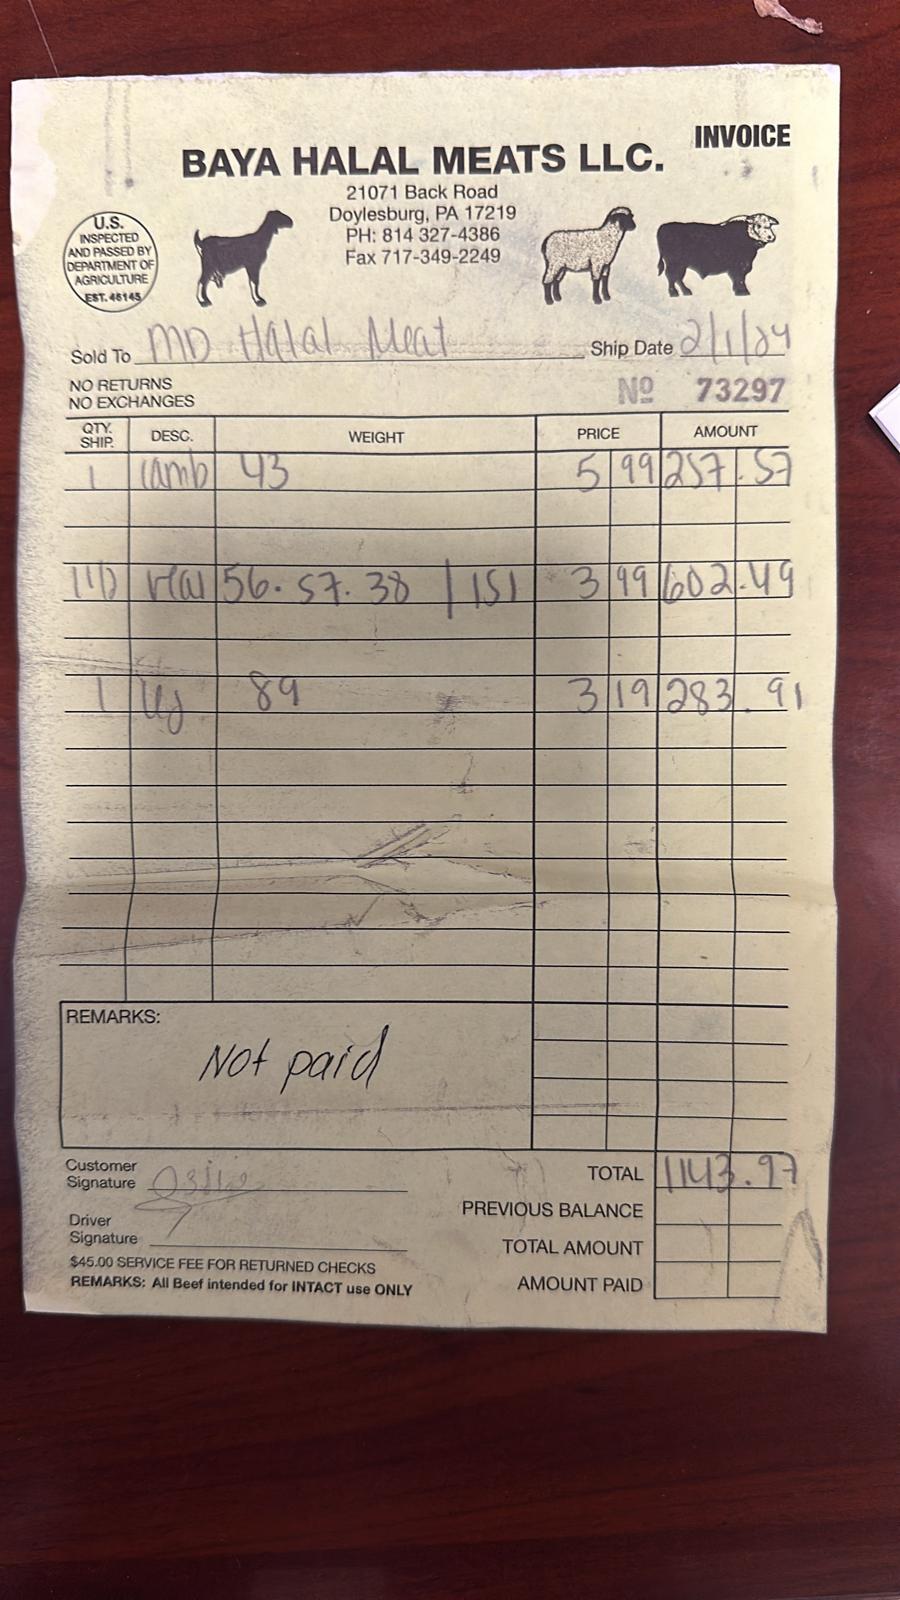 INVOICE
BAYA HALAL MEATS LLC.
21071 Back Road
Doylesburg, PA 17219
PH: 814 327-4386
Fax 717-349-2249
U.S.
INSPECTED
AND PASSED BY
DEPARTMENT OF
AGRICULTURE
EST. 46145
Sold To MD Halal Meat Ship Date 2/1/24
NO RETURNS
NO EXCHANGES
Nº 73297
QTY. SHIP. DESC. WEIGHT PRICE AMOUNT
1 lamb 43 5 99 257.57
veal 56. 57. 38 | 151 3 99 602.49
1 89 3 19 283.91
REMARKS:
Not paid
Customer
Signature
Driver
Signature
$45.00 SERVICE FEE FOR RETURNED CHECKS
REMARKS: All Beef intended for INTACT use ONLY
TOTAL 1143.97
PREVIOUS BALANCE
TOTAL AMOUNT
AMOUNT PAID